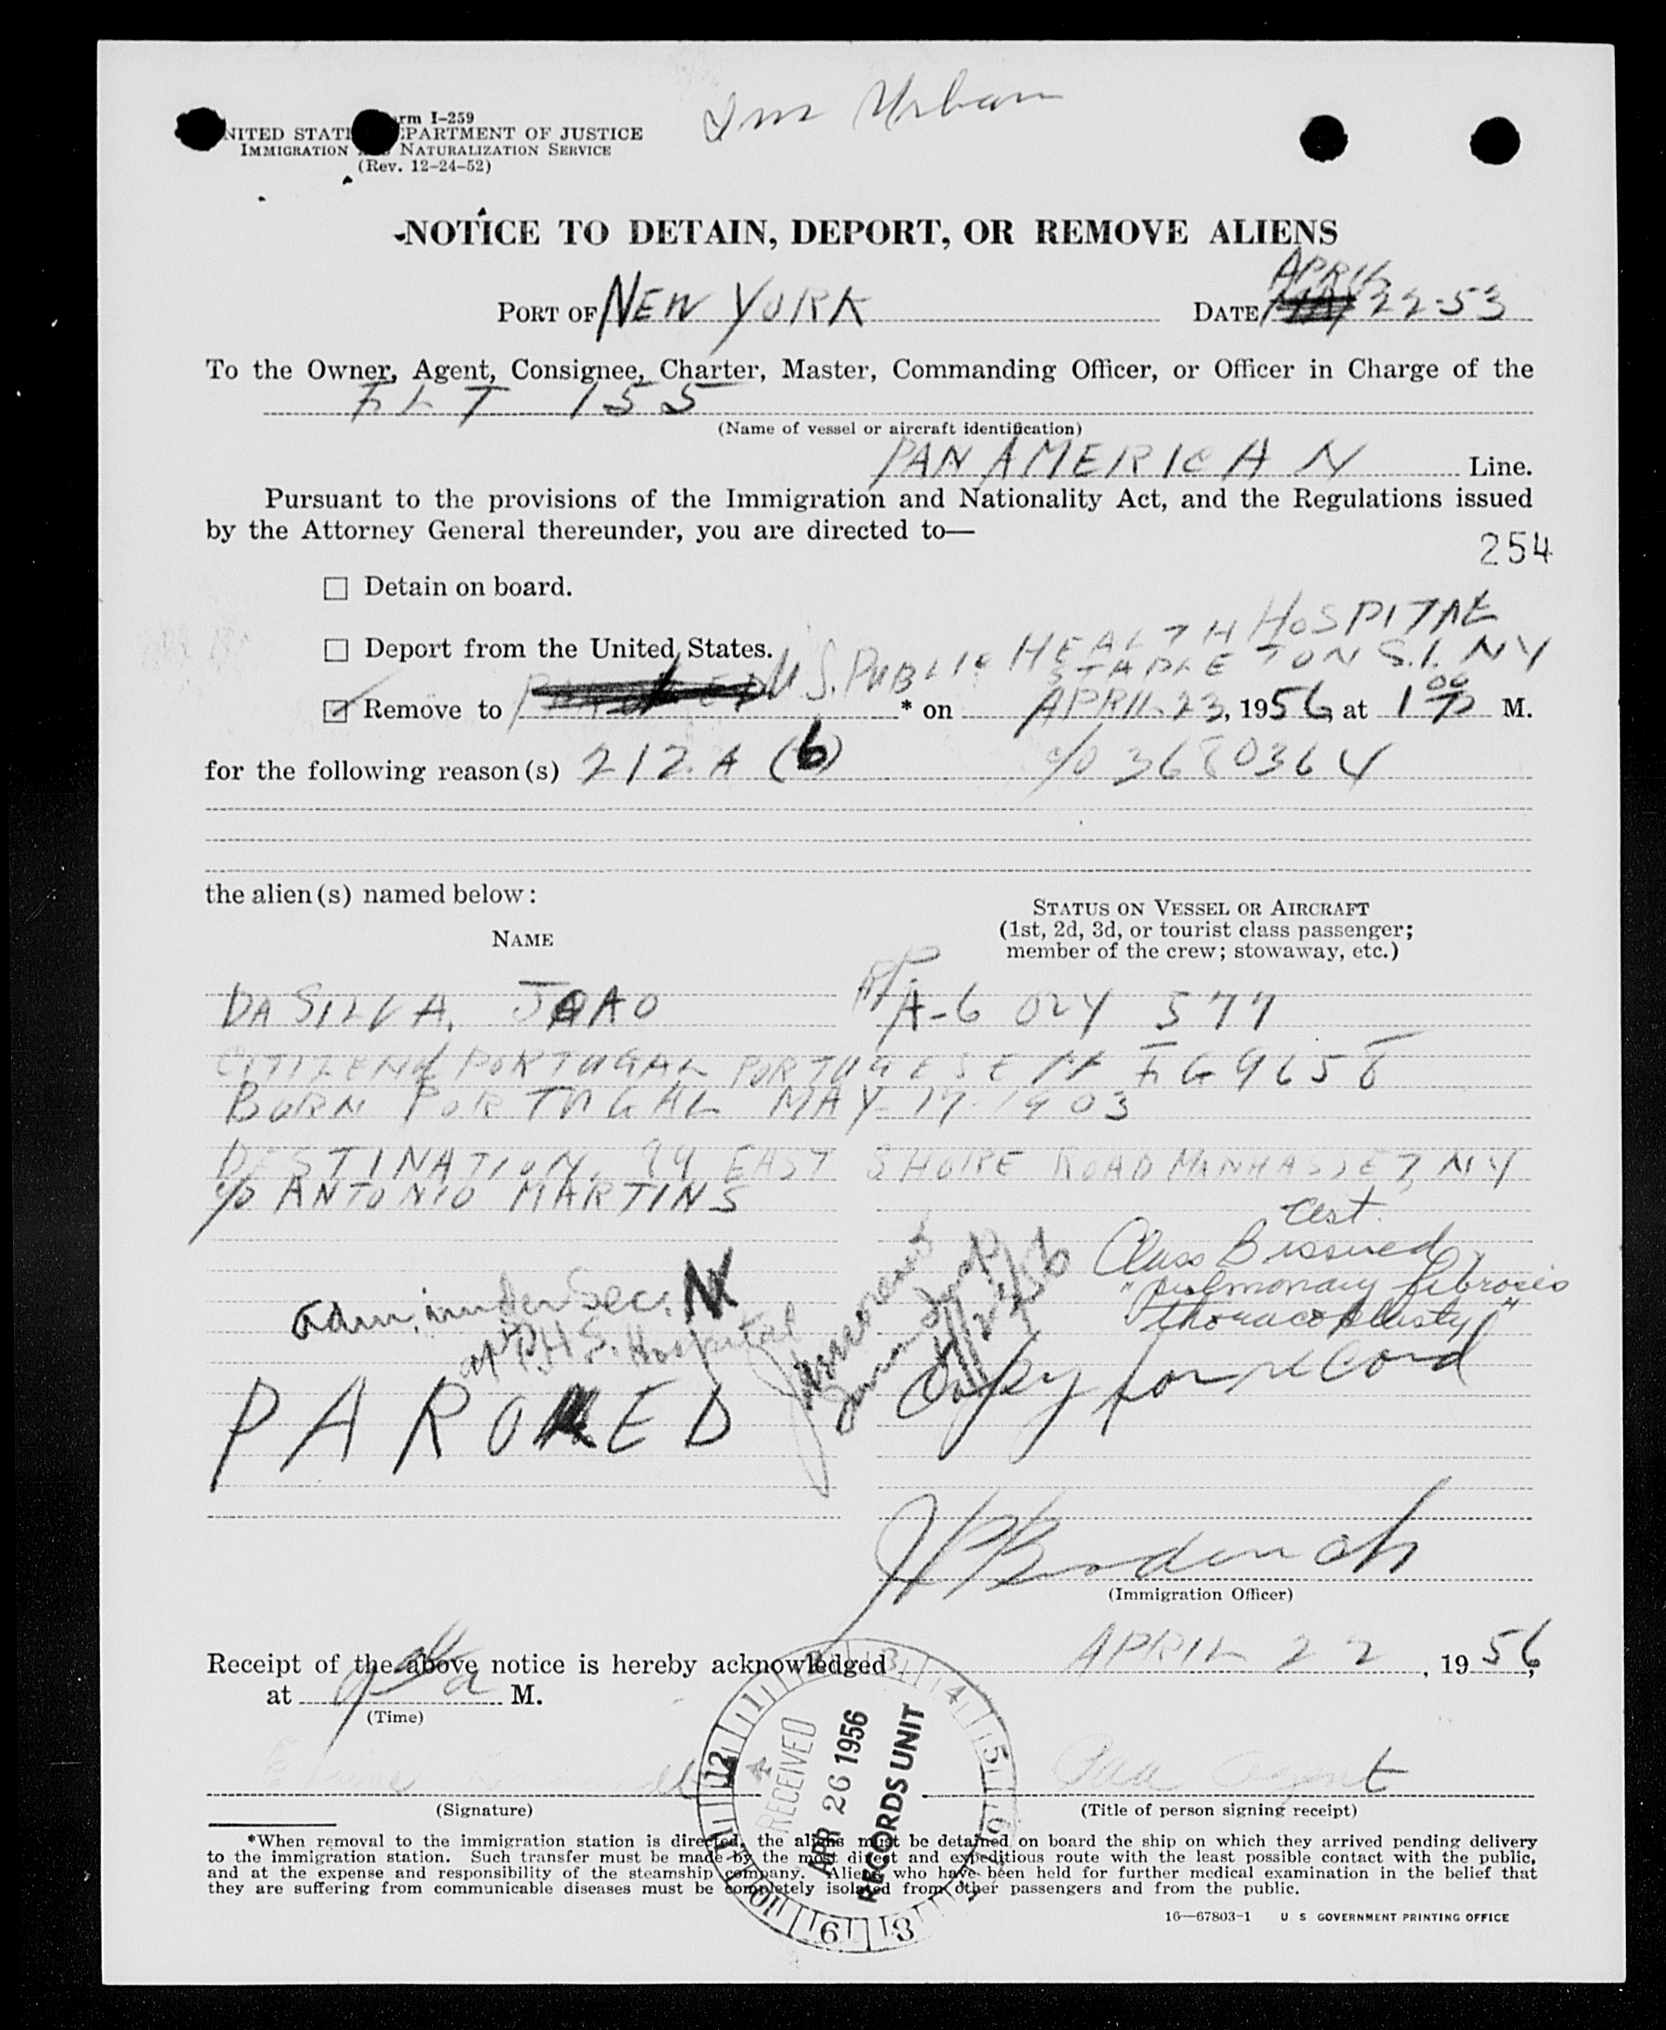 Urban
Form I-259
UNITED STATES DEPARTMENT OF JUSTICE
IMMIGRATION AND NATURALIZATION SERVICE
(Rev. 12-24-52)
NOTICE TO DETAIN, DEPORT, OR REMOVE ALIENS
APRIL
PORT OF NEW YORK DATE 22-53
To the Owner, Agent, Consignee, Charter, Master, Commanding Officer, or Officer in Charge of the
FLT 155
(Name of vessel or aircraft identification)
PAN AMERICAN Line.
Pursuant to the provisions of the Immigration and Nationality Act, and the Regulations issued
by the Attorney General thereunder, you are directed to—
254
☐ Detain on board.
☐ Deport from the United States.
U.S. PUBLIC HEALTH HOSPITAL
STAPLETON S.I. NY
☑ Remove to * on APRIL 23, 1956, at 1 00 P M.
for the following reason(s) 212.A (6) % 3680364
the alien(s) named below:
NAME
STATUS ON VESSEL OR AIRCRAFT
(1st, 2d, 3d, or tourist class passenger;
member of the crew; stowaway, etc.)
DA SILVA, JOAO A-6 024 577
CITIZEN OF PORTUGAL PORTUGESE
BORN PORTUGAL MAY-17-1903
DESTINATION. 99 EAST SHORE ROAD MANHASSET, NY
c/o ANTONIO MARTINS
Cert.
Class B issued
"pulmonary fibrosis
thoracoplasty"
adm. under Sec.
at P.H.S. Hospital
copy for record
PAROLED
(Immigration Officer)
Receipt of the above notice is hereby acknowledged APRIL 22, 1956,
at M.
(Time)
agent
(Signature)
(Title of person signing receipt)
RECEIVED
APR 26 1956
RECORDS UNIT
*When removal to the immigration station is directed, the aliens must be detained on board the ship on which they arrived pending delivery
to the immigration station. Such transfer must be made by the most direct and expeditious route with the least possible contact with the public,
and at the expense and responsibility of the steamship company. Aliens who have been held for further medical examination in the belief that
they are suffering from communicable diseases must be completely isolated from other passengers and from the public.
16—67803-1 U S GOVERNMENT PRINTING OFFICE